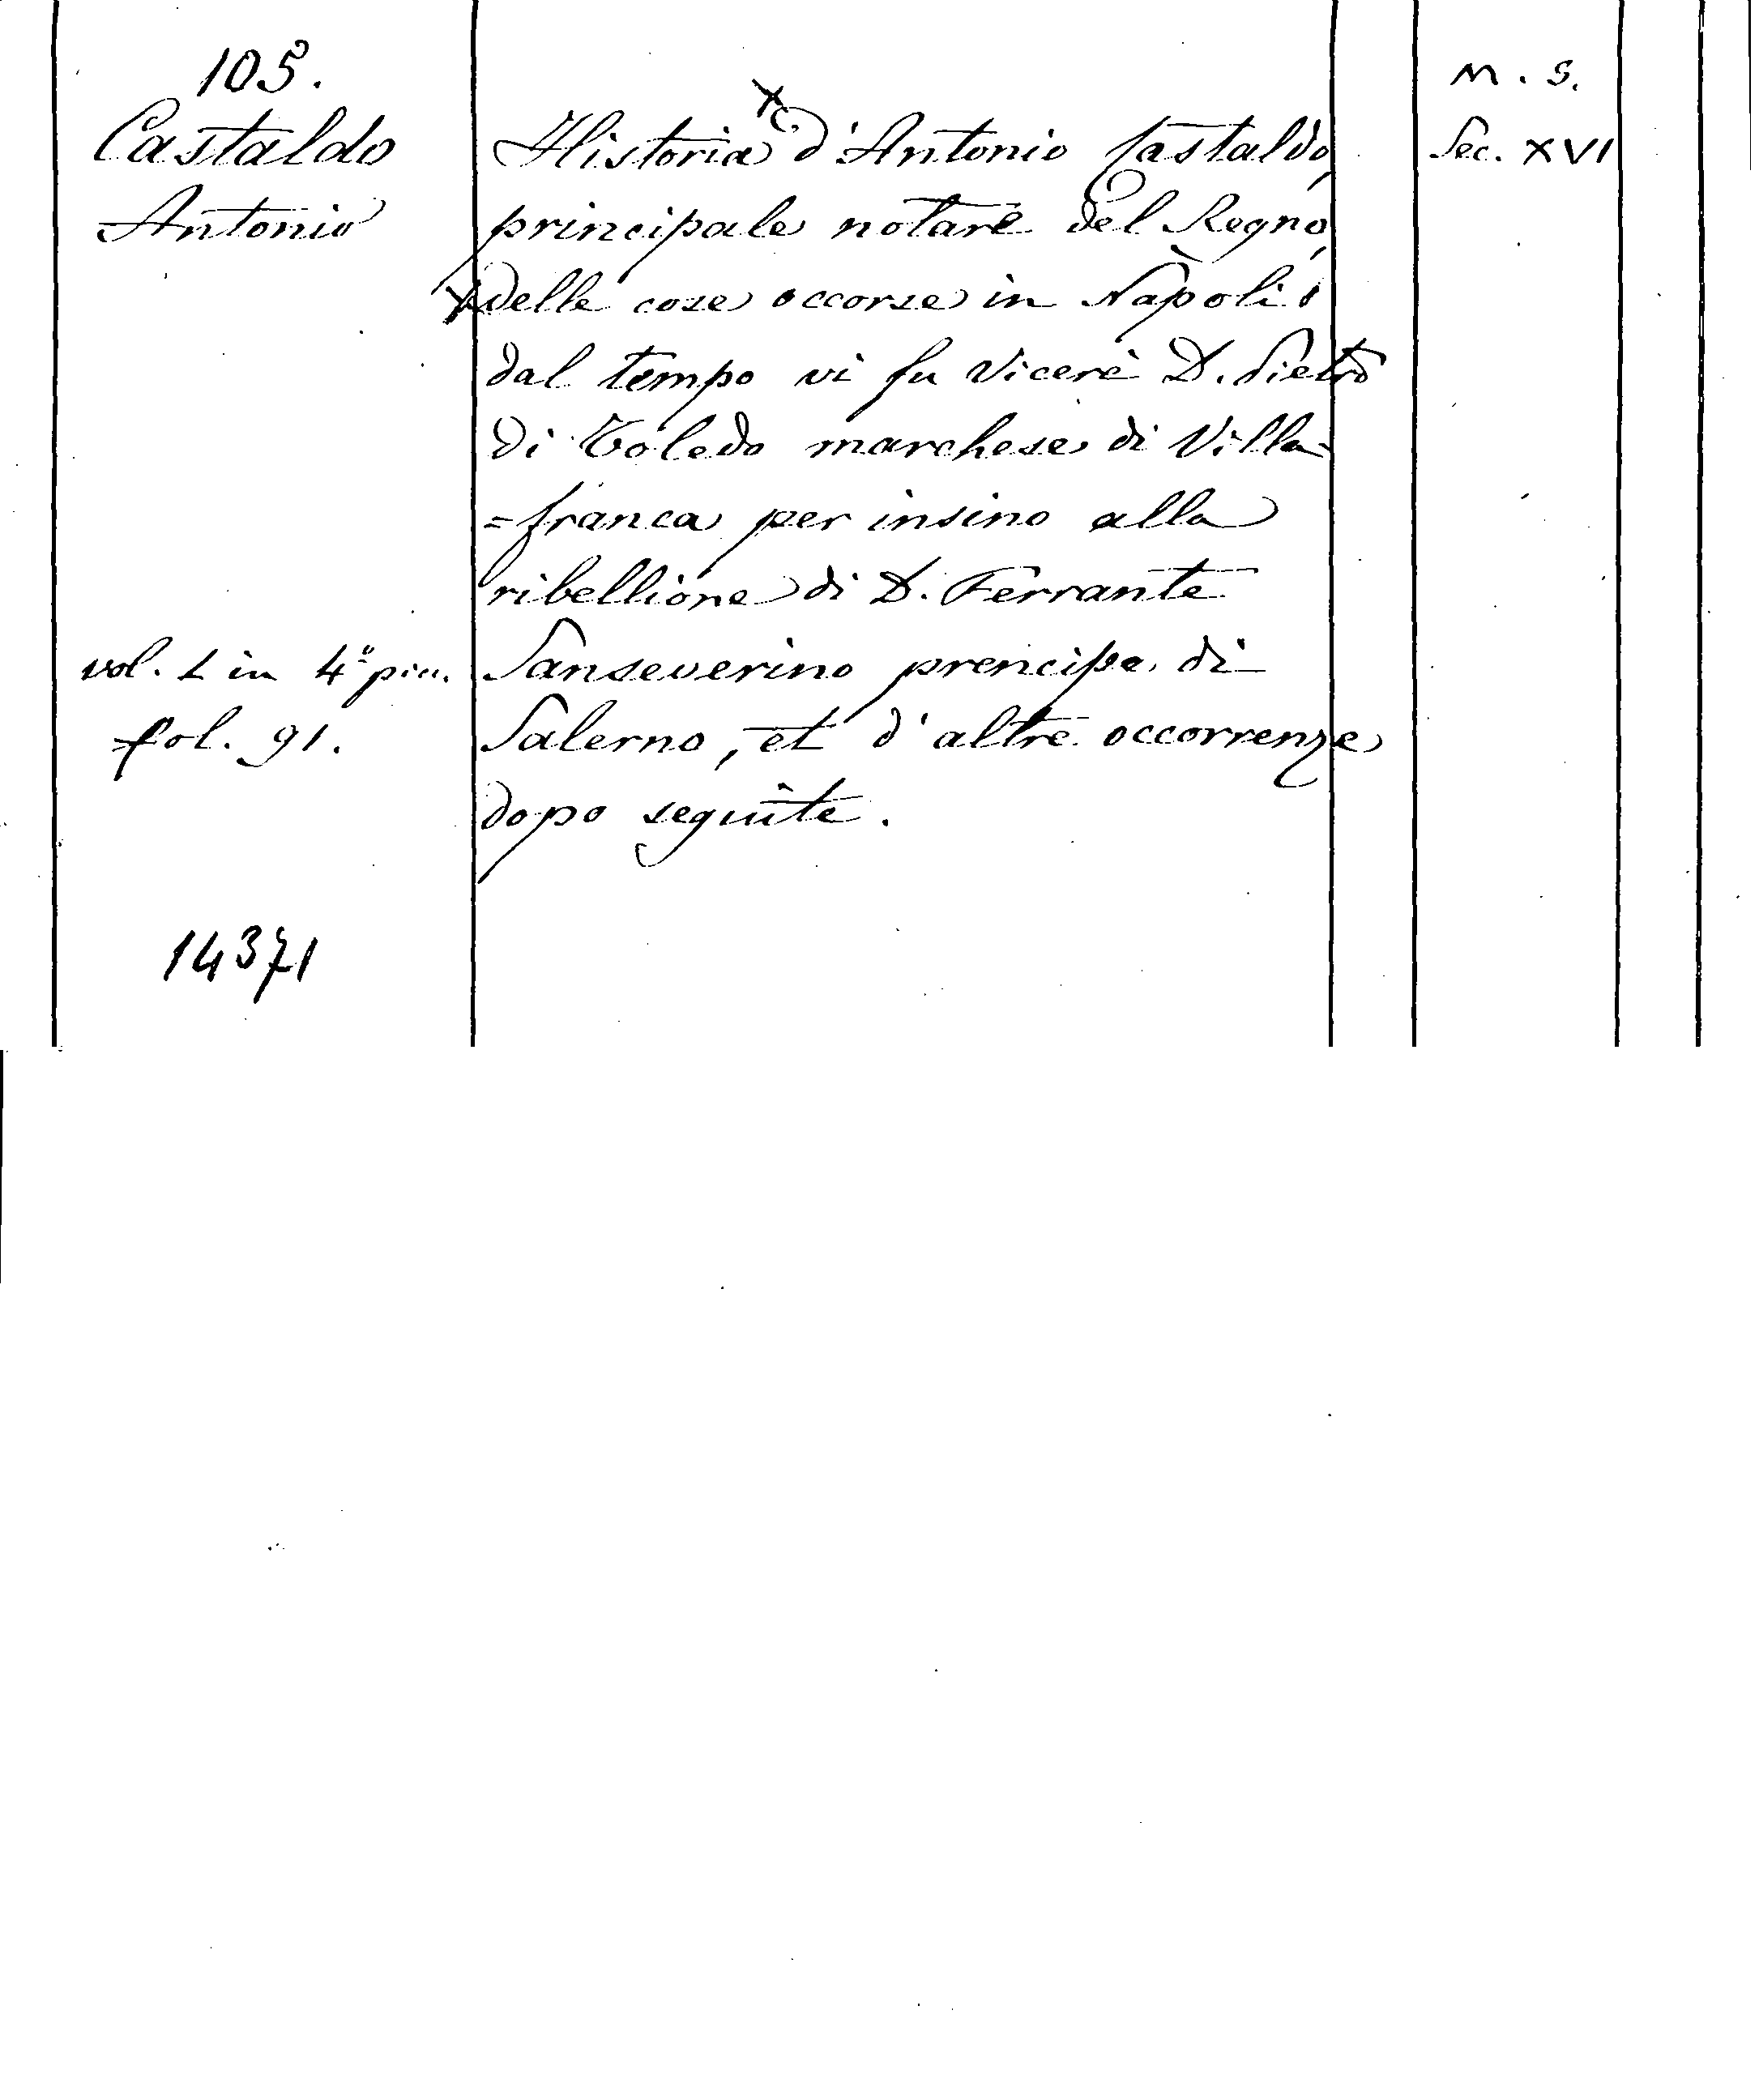 105.
Castaldo
Antonio
vol. 1 in 4º picc.
fol. 91.
14371
Historia d'Antonio Castaldo,
principale notare del Regno,
delle cose occorse in Napoli
dal tempo vi fu Vicerè D. Pietro
di Toledo marchese di Villa=
=franca per insino alla
ribellione di D. Ferrante
Sanseverino prencipe di
Salerno, et d'altre occorrenze
dopo seguite.
M. S.
Sec. XVI